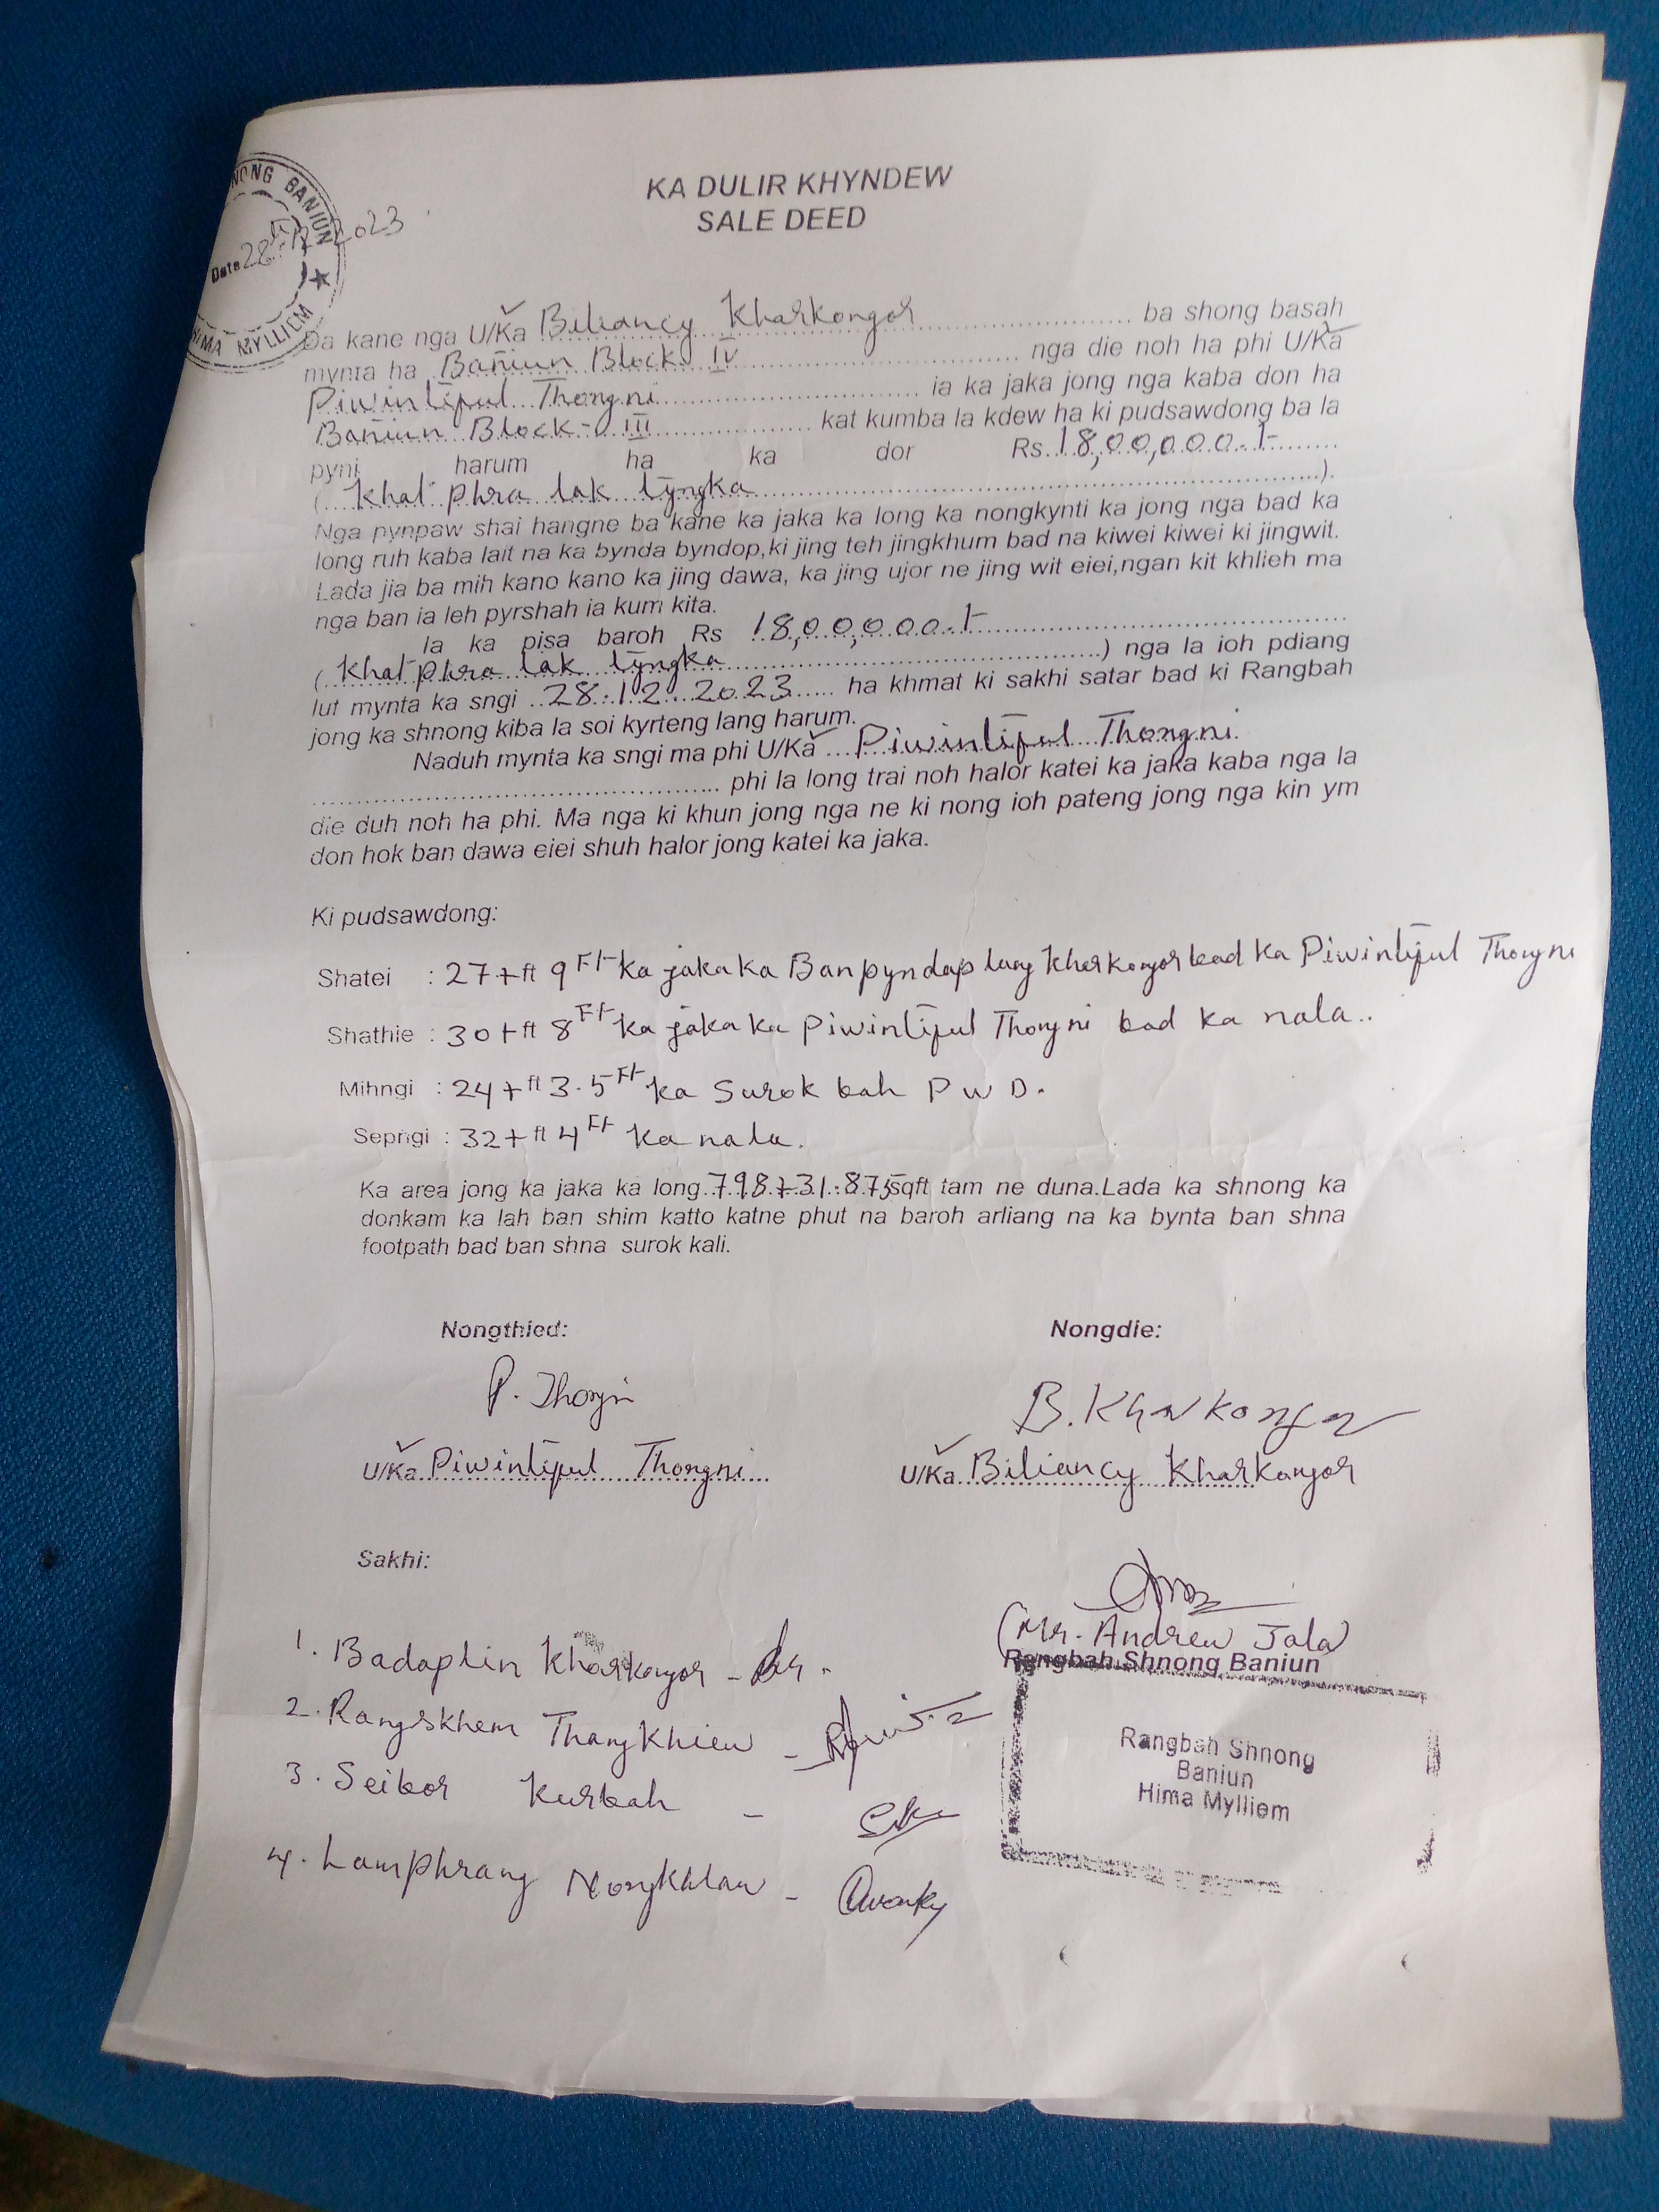 KA DULIR KHYNDEW
SALE DEED
NONG BANIUN
Date 28.12.2023
HIMA MYLLIEM
Da kane nga U/Ka Biliancy Kharkongor ba shong basah
mynta ha Bañiun Block IV nga die noh ha phi U/Ka
Piwintiful Thongni ia ka jaka jong nga kaba don ha
Bañiun Block - III kat kumba la kdew ha ki pudsawdong ba la
pyni harum ha ka dor Rs. 18,00,000.-/-
( Khat phra lak tyngka ).
Nga pynpaw shai hangne ba kane ka jaka ka long ka nongkynti ka jong nga bad ka
long ruh kaba lait na ka bynda byndop,ki jing teh jingkhum bad na kiwei kiwei ki jingwit.
Lada jia ba mih kano kano ka jing dawa, ka jing ujor ne jing wit eiei,ngan kit khlieh ma
nga ban ia leh pyrshah ia kum kita.
Ia ka pisa baroh Rs 18,00,000.-/-
( Khat phra lak tyngka ) nga la ioh pdiang
lut mynta ka sngi 28.12.2023 ha khmat ki sakhi satar bad ki Rangbah
jong ka shnong kiba la soi kyrteng lang harum.
Naduh mynta ka sngi ma phi U/Ka Piwintiful Thongni
phi la long trai noh halor katei ka jaka kaba nga la
die duh noh ha phi. Ma nga ki khun jong nga ne ki nong ioh pateng jong nga kin ym
don hok ban dawa eiei shuh halor jong katei ka jaka.
Ki pudsawdong:
Shatei : 27+ft 9 Ft ka jaka ka Banpyndaplang Kharkongor bad ka Piwintiful Thongni
Shathie : 30+ft 8 Ft ka jaka ka Piwintiful Thongni bad ka nala..
Mihngi : 24+ft 3.5 Ft ka Surok bah P W D.
Sepngi : 32+ft 4 Ft ka nala.
Ka area jong ka jaka ka long 798+31.875sqft tam ne duna.Lada ka shnong ka
donkam ka lah ban shim katto katne phut na baroh arliang na ka bynta ban shna
footpath bad ban shna surok kali.
Nongthied: Nongdie:
P. Thongni B. Kharkongor
U/Ka Piwintiful Thongni U/Ka Biliancy Kharkongor
Sakhi:
(Mr. Andrew Jala)
Rangbah Shnong Baniun
1. Badaplin Kharkongor -
2. Rangskhem Thangkhiew -
3. Seibor Kurbah -
4. Lamphrang Nongkhlaw -
Rangbah Shnong
Baniun
Hima Mylliem